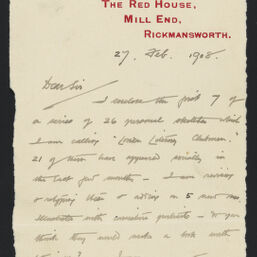 THE RED HOUSE,
MILL END,
RICKMANSWORTH.
27 Feb. 1908.
Dear Sir
I enclose the first 7 of
a series of 26 personal sketches which
I am calling "London Literary Clubmen."
21 of them have appeared serially in
the last few months – I am revising
or retyping them & adding 5 new ones.
Illustrated with caricature portraits – Do you
think they would make a book worth